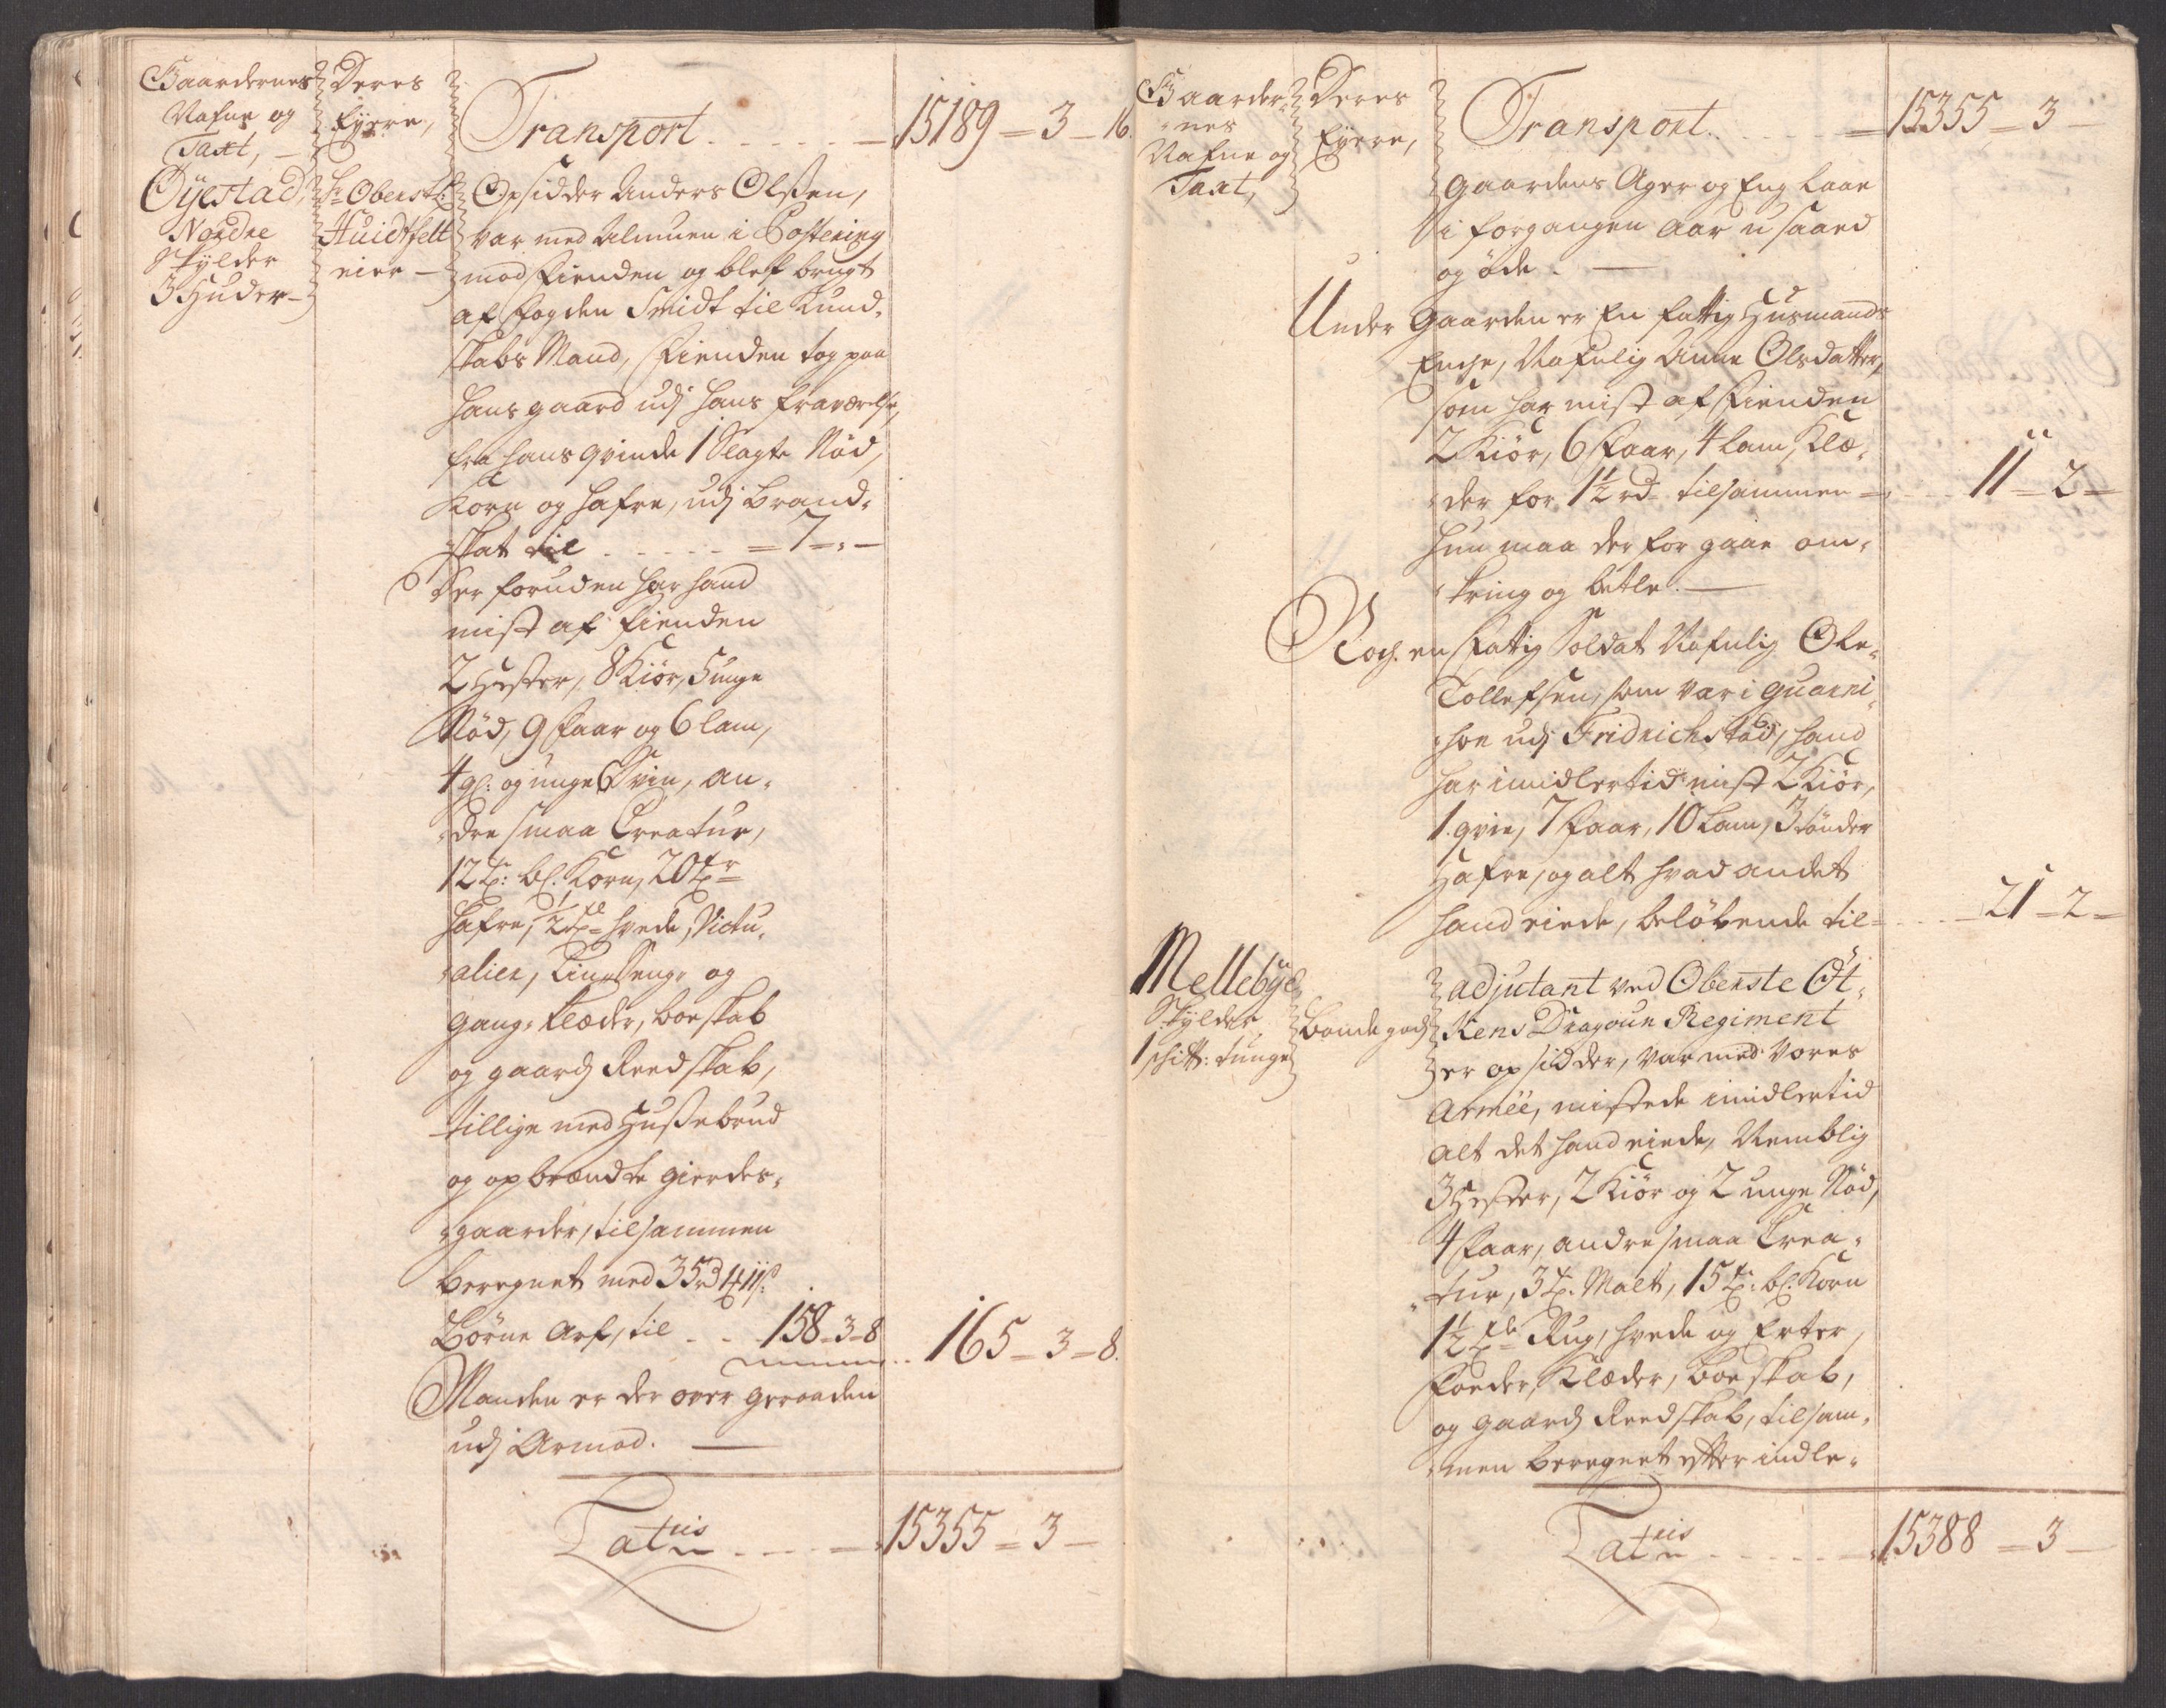 Gaardernes
Nafne og
Taxt,
Deres
Eÿere,
Transport - 15189 - 3 - 16.
Öÿestad,
Nordre
Skÿlder
3 Huder -
Hr Oberstl:
Huidtfelt
eier -
Opsidder Anders Olssen,
var med Almuen i Postering
mod Fienden og blef brugt
af Fogden Smidt til Kund-
skabs Mand, Fienden tog paa
hans gaard udj hans fraværelse,
fra hans qvinde 1 Slagte Nöd,
Korn og Hafre, udj Brand-
skat til - 7 - " -
Der foruden har hand
mist af Fienden
2 Hester, 8 Kiör, 5 unge
Nöd, 9 Faar og 6 lam,
4 gl: og unge Svin, an-
dre smaa Creatur,
12 tr: bl: Korn, 20 tr
Hafre, 1/2 tde hvede, Victu-
alier, Lin, Seng- og
Gang- klæder, boeskab
og gaards Reedskab,
tillige med Hussebrud
og opbrændte gierdes-
gaarder, tilsammen
beregnet med 35 rd 4 11 s
Börne Arf, til - 158 - 3 - 8 165 - 3 - 8.
Manden er der over geraaden
udj Armod. -
Latuis - 15355 - 3 -
Gaarder-
nes
Nafne og
Taxt,
Deres
Eÿere,
Transport - 15355 - 3 -
Gaardens Ager og Eng laae
i forgangen aar usaaed
og öde. -
Under Gaarden er En fattig Husmands
Enche, Nafnlig Anne Olsdatter,
som har mist af Fienden
2 Kiör, 6 Faar, 4 lam, Klæ-
der for 1 1/2 rd tilsammen - 11 - 2 -
hun maa der for gaae om-
kring og betle. -
Noch en fattig Soldat Nafnlig Ole
Tollefsen, som var i guarni-
son udj Fridrichstad, hand
har imidlertid mist 2 Kiör,
1 qvie, 7 Faar, 10 Lam, 3 tönder
Hafre, og alt hvad andet
hand eiede, belöbende til - 21 - 2 -
Mellebÿe
Skÿlder
1 schitt: tunge
Bondegods
adjutant ved Oberste Öt-
Kens Dragoun Regiment
er opsidder, var med vores
Armée, mistede imidlertid
alt det hand eiede, Nemblig
3 Hester, 2 Kiör og 2 unge Nöd,
4 Faar, andre smaa Crea-
tur, 3 t. Malt, 15 tr: bl: Korn
1 1/2 tde Rug, hvede og Erter,
Foeder, Klæder, boe skab,
og gaards Reedskab, tilsam-
men beregnet efter indle-
Latuis - 15388 - 3 -